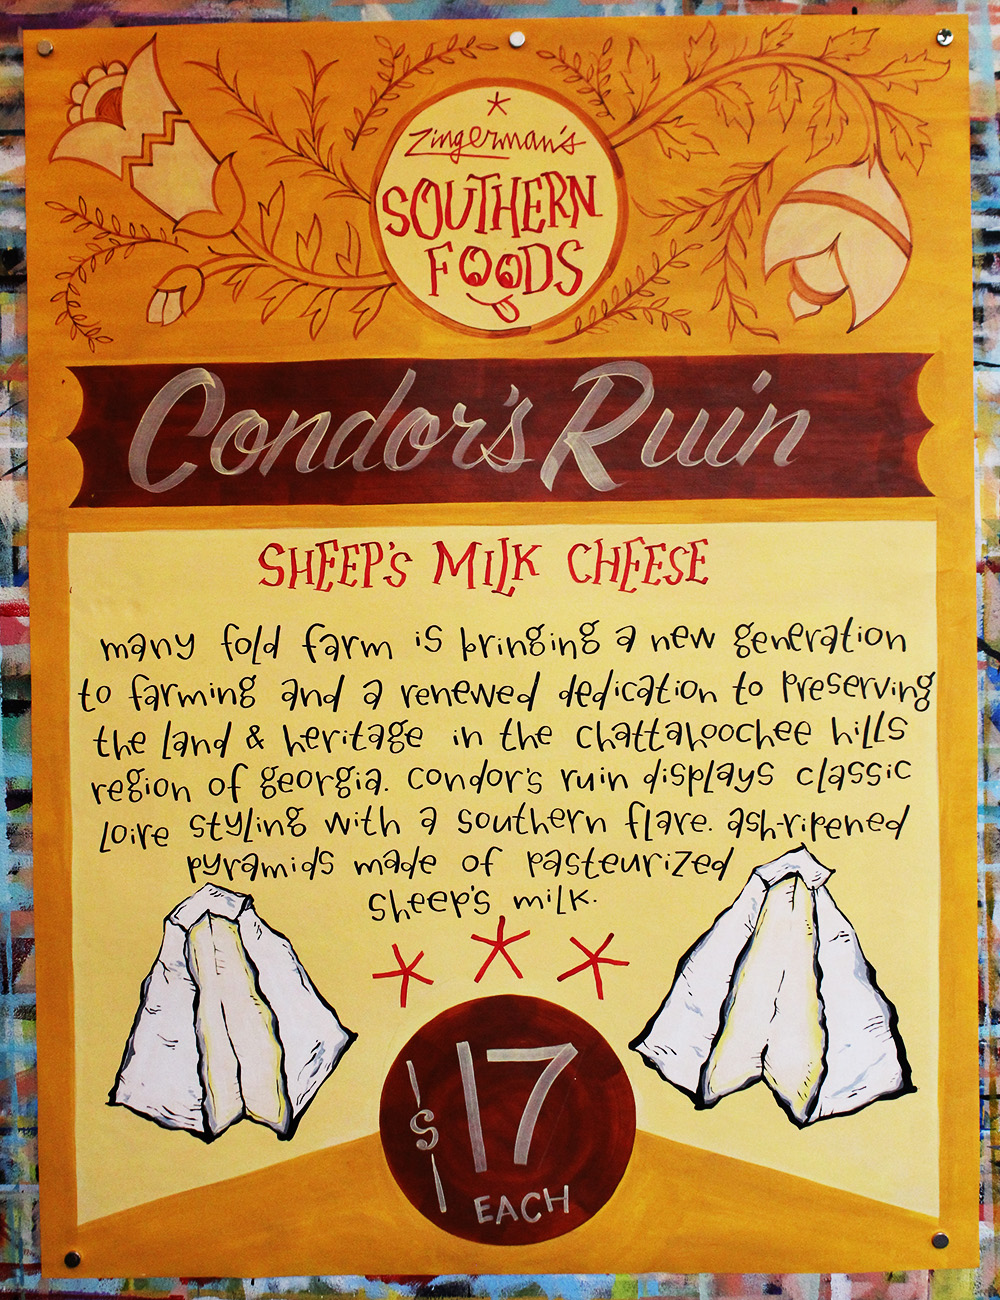 Zingerman's
SOUTHERN
FOODS
Condor's Ruin
SHEEP'S MILK CHEESE
many fold farm is bringing a new generation
to farming and a renewed dedication to preserving
the land & heritage in the chattahoochee hills
region of georgia. condor's ruin displays classic
loire styling with a southern flare. ash-ripened
pyramids made of pasteurized
sheep's milk.
$17
EACH